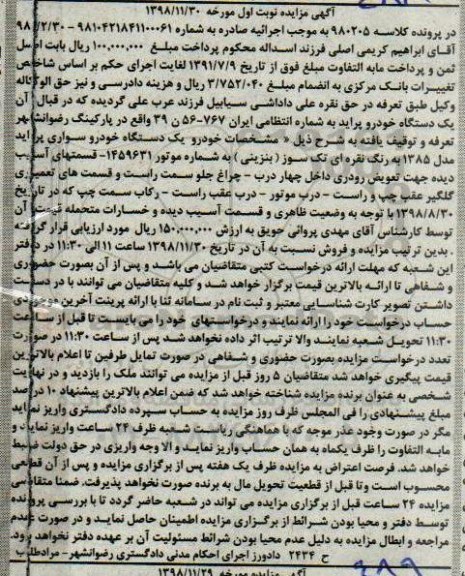 آگهی مزایده نوبت اول مورخه ۱۳۹۸/۱۱/۳۰
در پرونده کلاسه ۹۸۰۲۰۵ به موجب اجرائیه صادره به شماره ۹۸۱۰۴۲۱۸۴۱۱۰۰۰۶۱-
آقای ابراهیم کریمی اصلی فرزند اسداله محکوم پرداخت مبلغ ۱۰۰,۰۰۰,۰۰۰ ریال بابت اصل
ثمن و پرداخت مابه التفاوت مبلغ فوق از تاریخ ۱۳۹۱/۷/۹ لغایت اجرای حکم بر اساس شاخص
تغییرات بانک مرکزی به انضمام مبلغ ۳/۷۵۲/۰۴۰ ریال و هزینه دادرسی و نیز حق الوکاله
وکیل طبق تعرفه در حق نقره علی داداشی سیابیل فرزند عرب علی گردیده که در قبال آن
یک دستگاه خودرو پراید به شماره انتظامی ایران ۷۶۷-۵۶ ن ۳۹ واقع در پارکینگ رضوانشهر
تعرفه و توقیف یافته به شرح ذیل « مشخصات خودرو یک دستگاه خودرو سواری پراید
مدل ۱۳۸۵ به رنگ نقره ای تک سوز ( بنزینی ) به شماره موتور ۱۴۵۹۶۳۱-قسمتهای آسیب
دیده جهت تعویض رودری داخل چهار درب - چراغ جلو سمت راست و قسمت های تعمیری
گلگیر عقب چپ و راست - درب موتور - درب عقب راست - رکاب سمت چپ که در تاریخ
۱۳۹۸/۸/۳۰ با توجه به وضعیت ظاهری و قسمت آسیب دیده و خسارات متحمله قیمت آن
توسط کارشناس آقای مهدی پروانی حویق به ارزش ۱۵۰,۰۰۰,۰۰۰ ریال مورد ارزیابی قرار گرفته
. بدین ترتیب مزایده و فروش نسبت به آن در تاریخ ۱۳۹۸/۱۱/۳۰ ساعت ۱۱ الی ۱۱:۳۰ در دفتر
این شعبه که مهلت ارائه درخواست کتبی متقاضیان می باشد و پس از آن بصورت حضوری
و شفاهی تا ارائه بالاترین قیمت برگزار خواهد شد و کلیه متقاضیان می توانند با در دست
داشتن تصویر کارت شناسایی معتبر و ثبت نام در سامانه ثنا با ارائه پرینت آخرین موجودی
حساب درخواست خود را ارائه نمایند و درخواستهای خود را می بایست تا قبل از ساعت
۱۱:۳۰ تحویل شعبه نمایند والا ترتیب اثر داده نخواهد شد پس از ساعت ۱۱:۳۰ در صورت
تعدد درخواست مزایده بصورت حضوری و شفاهی در صورت تمایل طرفین تا اعلام بالاترین
قیمت پیگیری خواهد شد متقاضیان ۵ روز قبل از مزایده می توانند ملک را بازدید و در نهایت
شخصی به عنوان برنده مزایده شناخته خواهد شد که ضمن اعلام بالاترین پیشنهاد ۱۰ درصد
مبلغ پیشنهادی را فی المجلس ظرف روز مزایده به حساب سپرده دادگستری واریز نماید
مگر در صورت وجود عذر موجه که با هماهنگی ریاست شعبه ظرف ۲۴ ساعت واریز نماید و
مابه التفاوت را ظرف یکماه به همان حساب واریز نماید و الا وجه واریزی در حق دولت ضبط
خواهد شد. فرصت اعتراض به مزایده ظرف یک هفته پس از برگزاری مزایده و پس از آن قطعی
محسوب است و تا قبل از قطعیت تحویل مال به برنده صورت نخواهد پذیرفت. ضمنا متقاضی
مزایده ۲۴ ساعت قبل از برگزاری مزایده می تواند در شعبه حاضر گردد تا با بررسی پرونده
توسط دفتر و محیا بودن شرائط از برگزاری مزایده اطمینان حاصل نماید و در صورت عدم
مراجعه و ابطال مزایده به دلیل عدم محیا بودن شرائط مسئولیت آن بر عهده دفتر نخواهد بود.
ح ۲۴۳۴ دادورز اجرای احکام مدنی دادگستری رضوانشهر- مرادطلب
آگهی مزایده مورخه ۱۳۹۸/۱۱/۲۹